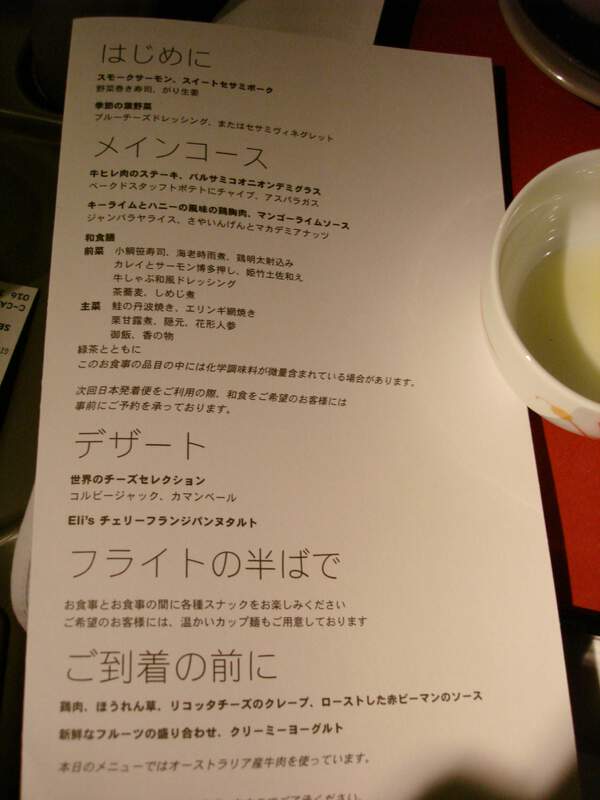 はじめに
スモークサーモン、スイートセサミポーク
野菜巻き寿司、がり生姜
季節の葉野菜
ブルーチーズドレッシング、またはセサミヴィネグレット
メインコース
牛ヒレ肉のステーキ、バルサミコオニオンデミグラス
ベークドスタッフトポテトにチャイブ、アスパラガス
キーライムとハニーの風味の鶏胸肉、マンゴーライムソース
ジャンバラヤライス、さやいんげんとマカデミアナッツ
和食膳
前菜 小鯛笹寿司、海老時雨煮、鶏明太射込み
カレイとサーモン博多押し、姫竹土佐和え
牛しゃぶ和風ドレッシング
茶蕎麦、しめじ煮
主菜 鮭の丹波焼き、エリンギ網焼き
栗甘露煮、隠元、花形人参
御飯、香の物
緑茶とともに
このお食事の品目の中には化学調味料が微量含まれている場合があります。
次回日本発着便をご利用の際、和食をご希望のお客様には
事前にご予約を承っております。
デザート
世界のチーズセレクション
コルビージャック、カマンベール
Eli's チェリーフランジパンヌタルト
フライトの半ばで
お食事とお食事の間に各種スナックをお楽しみください
ご希望のお客様には、温かいカップ麺もご用意しております
ご到着の前に
鶏肉、ほうれん草、リコッタチーズのクレープ、ローストした赤ピーマンのソース
新鮮なフルーツの盛り合わせ、クリーミーヨーグルト
本日のメニューではオーストラリア産牛肉を使っています。
ご了承ください。
C-CA
016